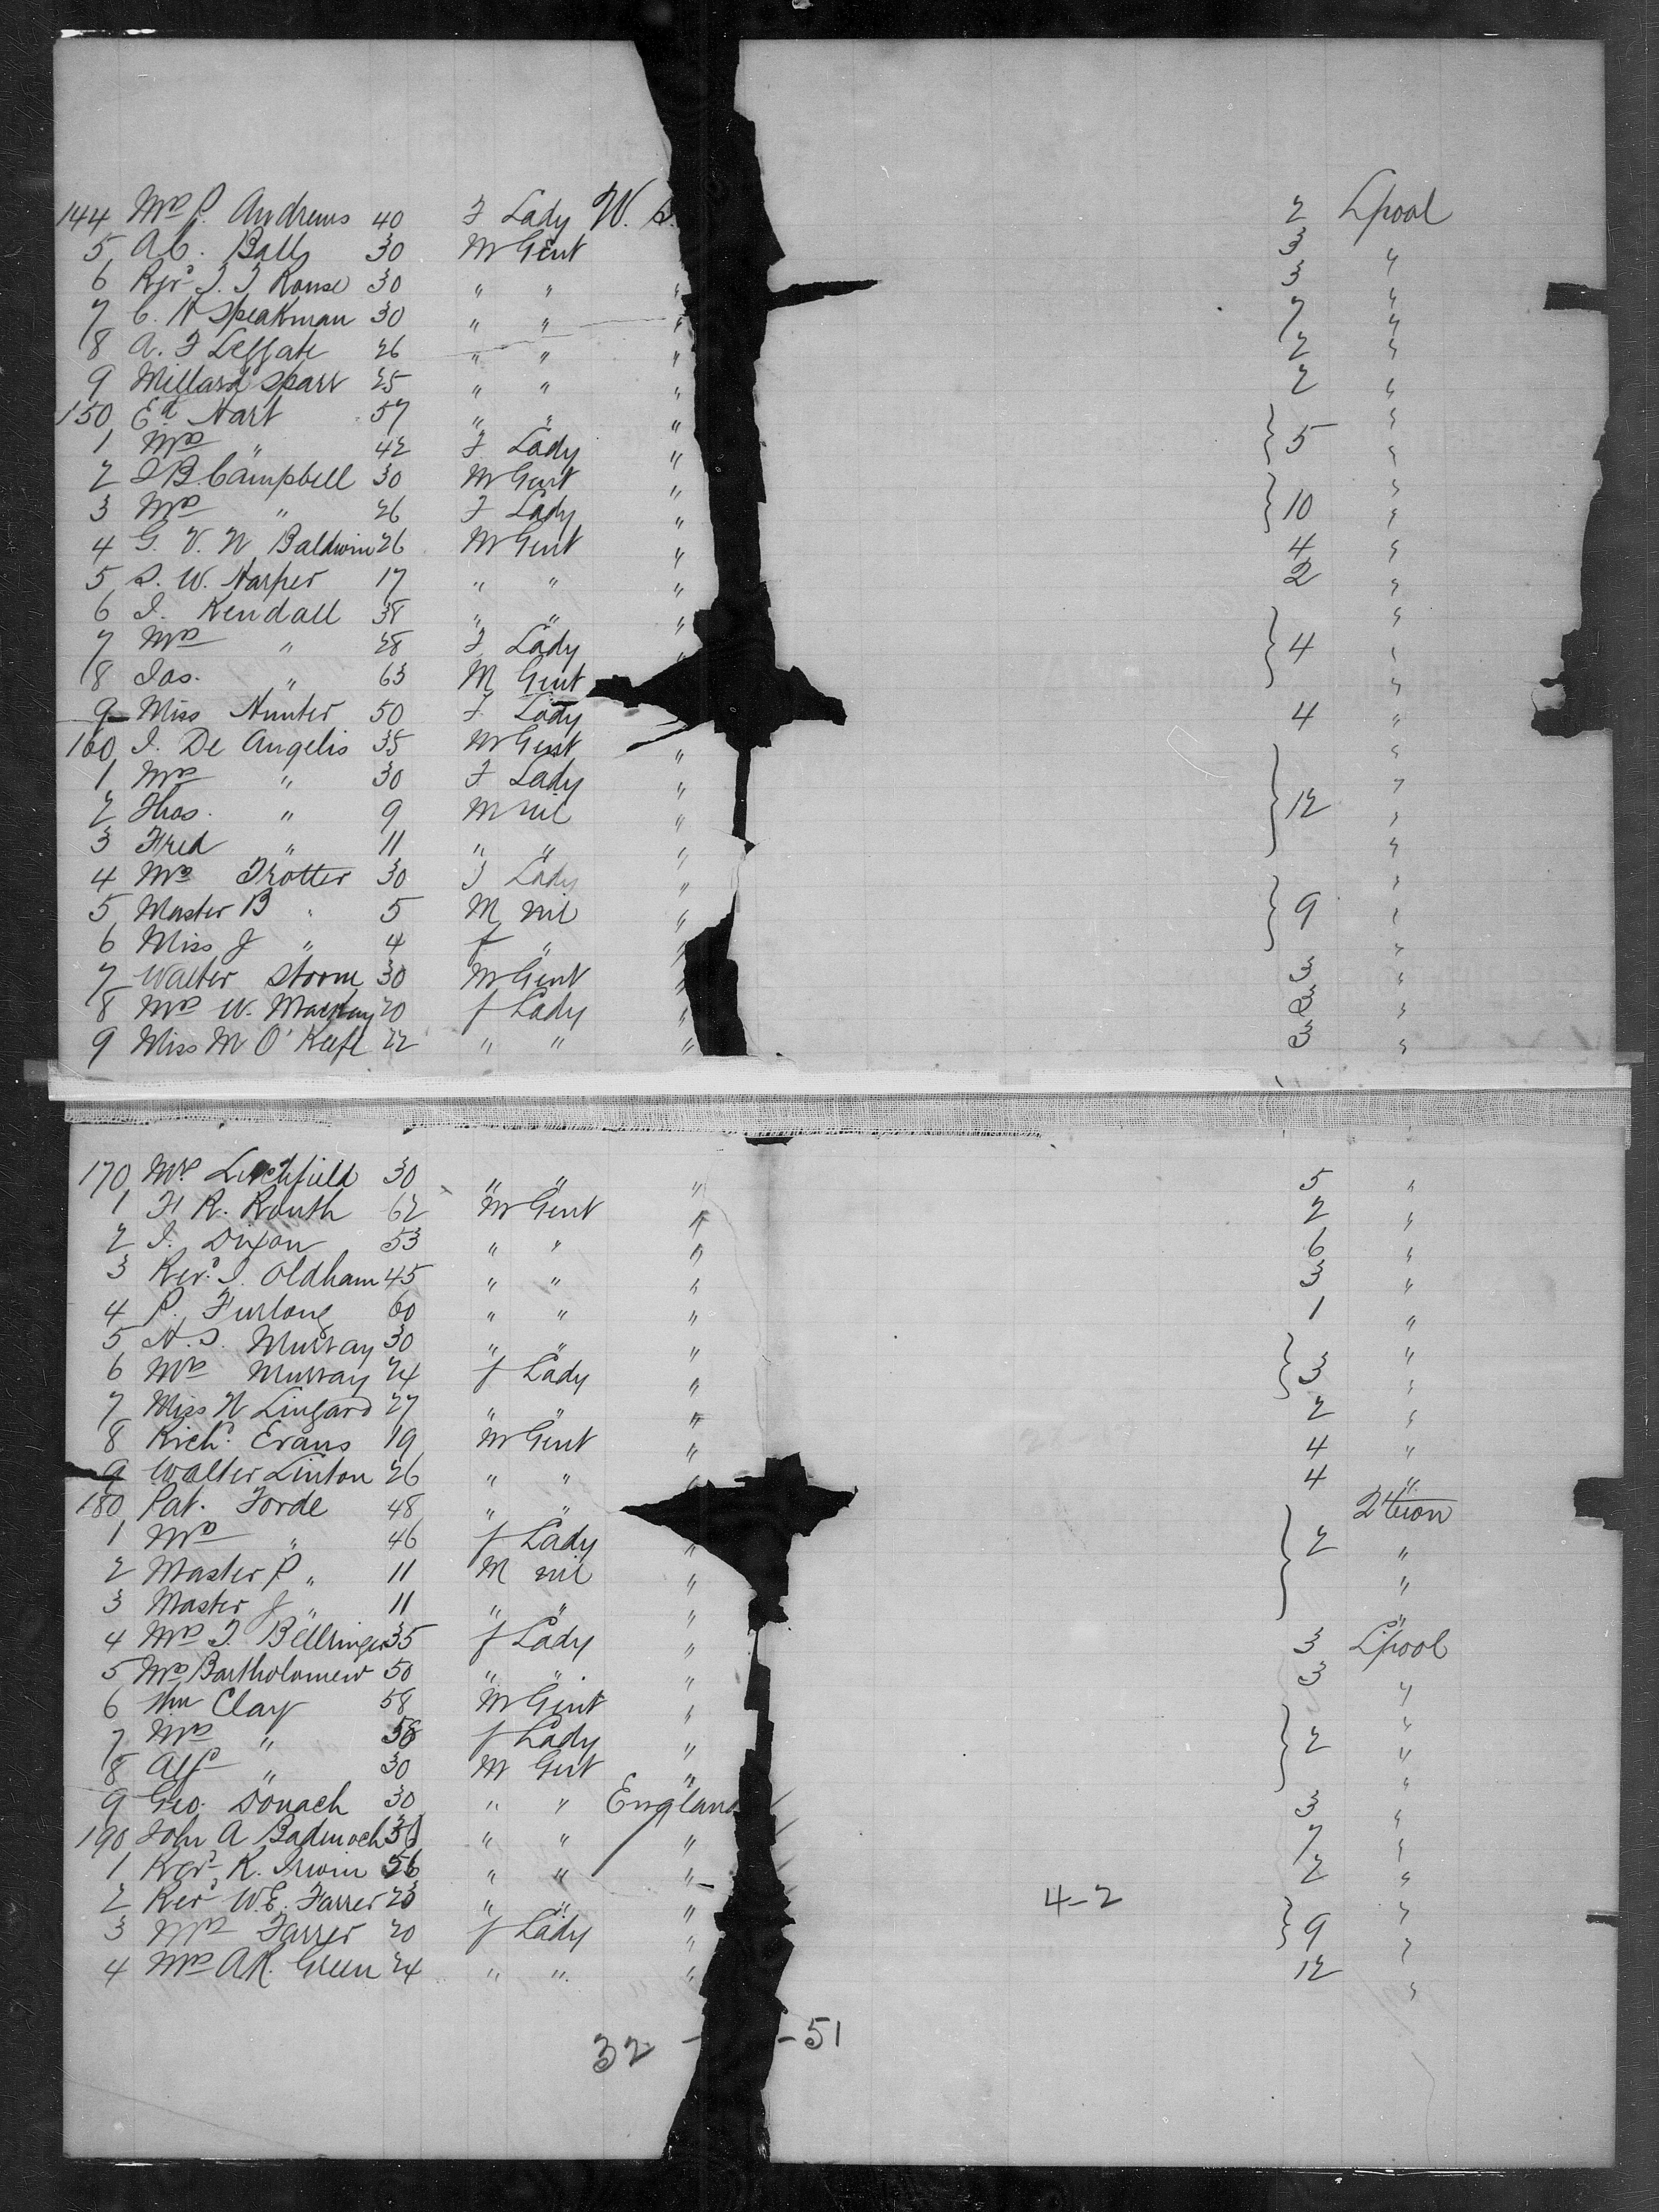 144 Mrs P. Andrews 40 F Lady U. S. 2 Lpool
5 A C. Balls 30 M Gent 3 "
6 Revd J. J. Rouse 30 " " " 3 "
7 C. H Speakman 30 " " " 7 "
8 A. F Leggate 26 " " " 2 "
9 Millard Sparr 25 " " " 2 "
150 Ed Hart 57 " " " "
1 Mrs " 42 F Lady " 5 "
2 J B. Campbell 30 M Gent " "
3 Mrs " 26 F Lady " 10 "
4 G. V. N Baldwin 26 M Gent " 4 "
5 S. W. Harper 17 " " " 2 "
6 J. Kendall 38 " " " "
7 Mrs " 28 F Lady " 4 "
8 Jas. " 63 M Gent "
9 Miss Hunter 50 F Lady 4 "
160 J. De Angelis 35 M Gent " "
1 Mrs " 30 F Lady " "
2 Thos. " 9 M nil " 12 "
3 Fred " 11 " " " "
4 Mrs Trotter 30 F Lady " "
5 Master B " 5 M nil " 9 "
6 Miss J " 4 f " " "
7 Walter Storm 30 M Gent " 3 "
8 Mrs W. Mackay 20 f Lady " 3 "
9 Miss M O'Keefe 22 " " " 3 "
170 Mrs Litchfield 30 " " " 5 "
1 H R. Routh 62 M Gent " 2 "
2 J. Dixon 53 " " " 6 "
3 Revd J. Oldham 45 " " " 3 "
4 P. Furlong 60 " " " 1 "
5 H. S. Murray 30 " " " "
6 Mrs Murray 24 f Lady " 3 "
7 Miss N Lingard 27 " " " 2 "
8 Richd. Evans 19 M Gent " 4 "
9 Walter Linton 26 " " " 4 "
180 Pat. Forde 48 " " Qtown
1 Mrs " 46 f Lady " 2 "
2 Master P " 11 M nil " "
3 Master J " 11 " " " "
4 Mrs J. Bellringer 35 f Lady " 3 Lpool
5 Mrs Bartholomew 50 " " " 3 "
6 Wm Clay 58 M Gent " "
7 Mrs " 58 f Lady " 2 "
8 Alfd " 30 M Gent " "
9 Geo. Donach 30 " " England 3 "
190 John A Badenoch 36 " " " 7 "
1 Revd R. Irwin 56 " " " 2 "
2 Revd W. E. Farrer 28 " " " "
4-2
3 Mrs Farrer 20 f Lady " 9 "
4 Mrs A R. Green 24 " " " 12 "
32 - - 51